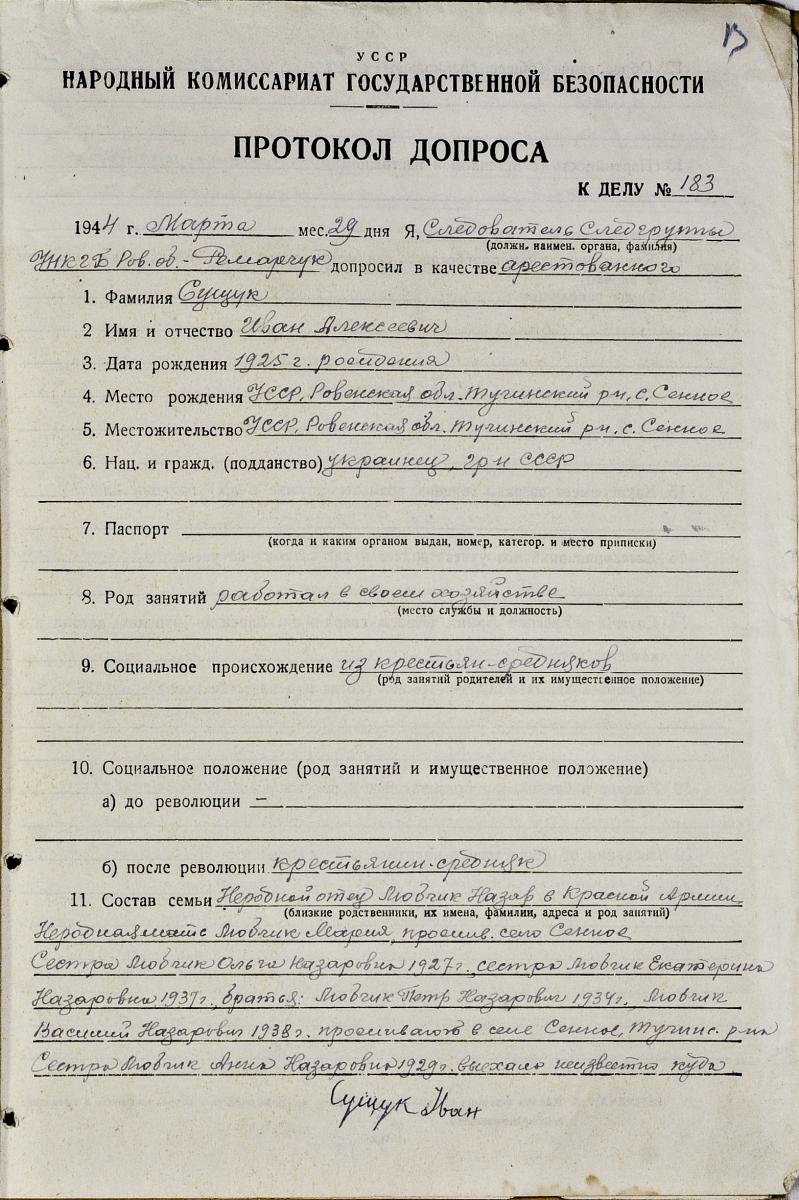 13
УССР
НАРОДНЫЙ КОМИССАРИАТ ГОСУДАРСТВЕННОЙ БЕЗОПАСНОСТИ
ПРОТОКОЛ ДОПРОСА
К ДЕЛУ № 183
1944 г. Марта мес. 29 дня Я, Следователь Следгруппы
(должн. наимен. органа, фамилия)
УНКГБ Ров. об. - Ремарчук допросил в качестве арестованного
1. Фамилия Сущук
2 Имя и отчество Иван Алексеевич
3. Дата рождения 1925 г. рождения
4. Место рождения УССР, Ровенская обл. Тучинский р-н, с. Сенное
5. Местожительство УССР, Ровенская обл. Тучинский р-н. с. Сенное
6. Нац. и гражд. (подданство) украинец, гр-н СССР
7. Паспорт
(когда и каким органом выдан, номер, категор. и место приписки)
8. Род занятий работал в своем хозяйстве
(место службы и должность)
9. Социальное происхождение из крестьян-средняков
(род занятий родителей и их имущественное положение)
10. Социальное положение (род занятий и имущественное положение)
а) до революции —
б) после революции крестьянин-средняк
11. Состав семьи Неродной отец Любчик Назар в Красной Армии
(близкие родственники, их имена, фамилии, адреса и род занятий)
Неродная мать Любчик Мария, прожив. село Сенное
Сестра Любчик Ольга Назаровна 1927 г., сестра Любчик Екатерина
Назаровна 1937 г., братья: Любчик Петр Назарович 1934 г., Любчик
Василий Назарович 1938 г. проживают в селе Сенное, Тучинс. р-на
Сестра Любчик Анна Назаровна 1929 г. выехала неизвестно куда
Сущук Иван